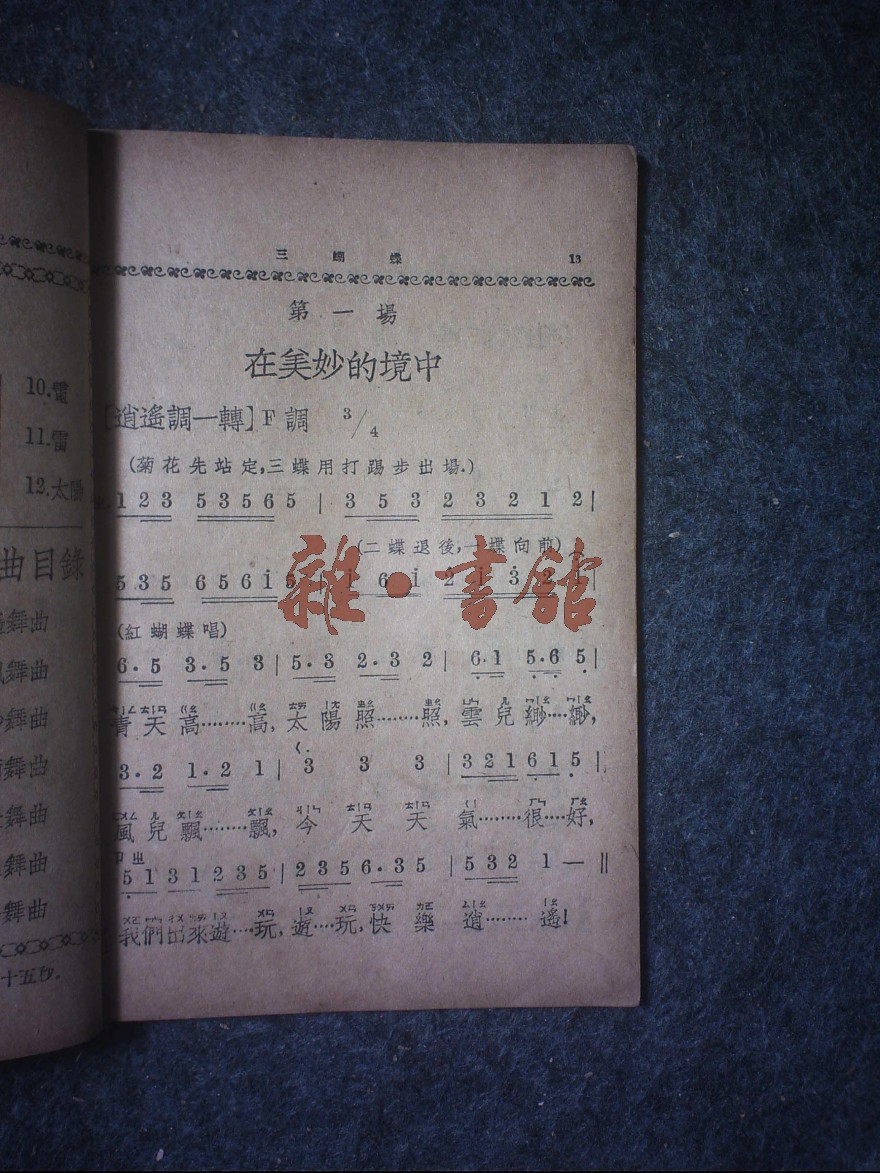 10.電
11.雷
12.太陽
曲目錄
舞曲
舞曲
舞曲
舞曲
舞曲
舞曲
舞曲
十五秒.
三蝴蝶
13
第一場
在美妙的境中
[逍遙調一轉]F調 3/4
(菊花先站定,三蝶用打踢步出場.)
1 2 3 5 3 5 6 5 | 3 5 3 2 3 2 1 2 |
(二蝶退後,一蝶向前)
5 3 5 6 5 6 i 5
雜·書館
(紅蝴蝶唱)
6·5 3·5 3 | 5·3 2·3 2 | 6·1 5·6 5 |
青天高……高,太陽照……照,雲兒緲…緲,
3·2 1·2 1 | 3 3 3 | 3 2 1 6 1 5 |
風兒飄……飄,今天天氣…很…好,
5 1 3 1 2 3 5 | 2 3 5 6·3 5 | 5 3 2 1 — ||
我們出來遊…玩,遊…玩,快樂逍……遙!